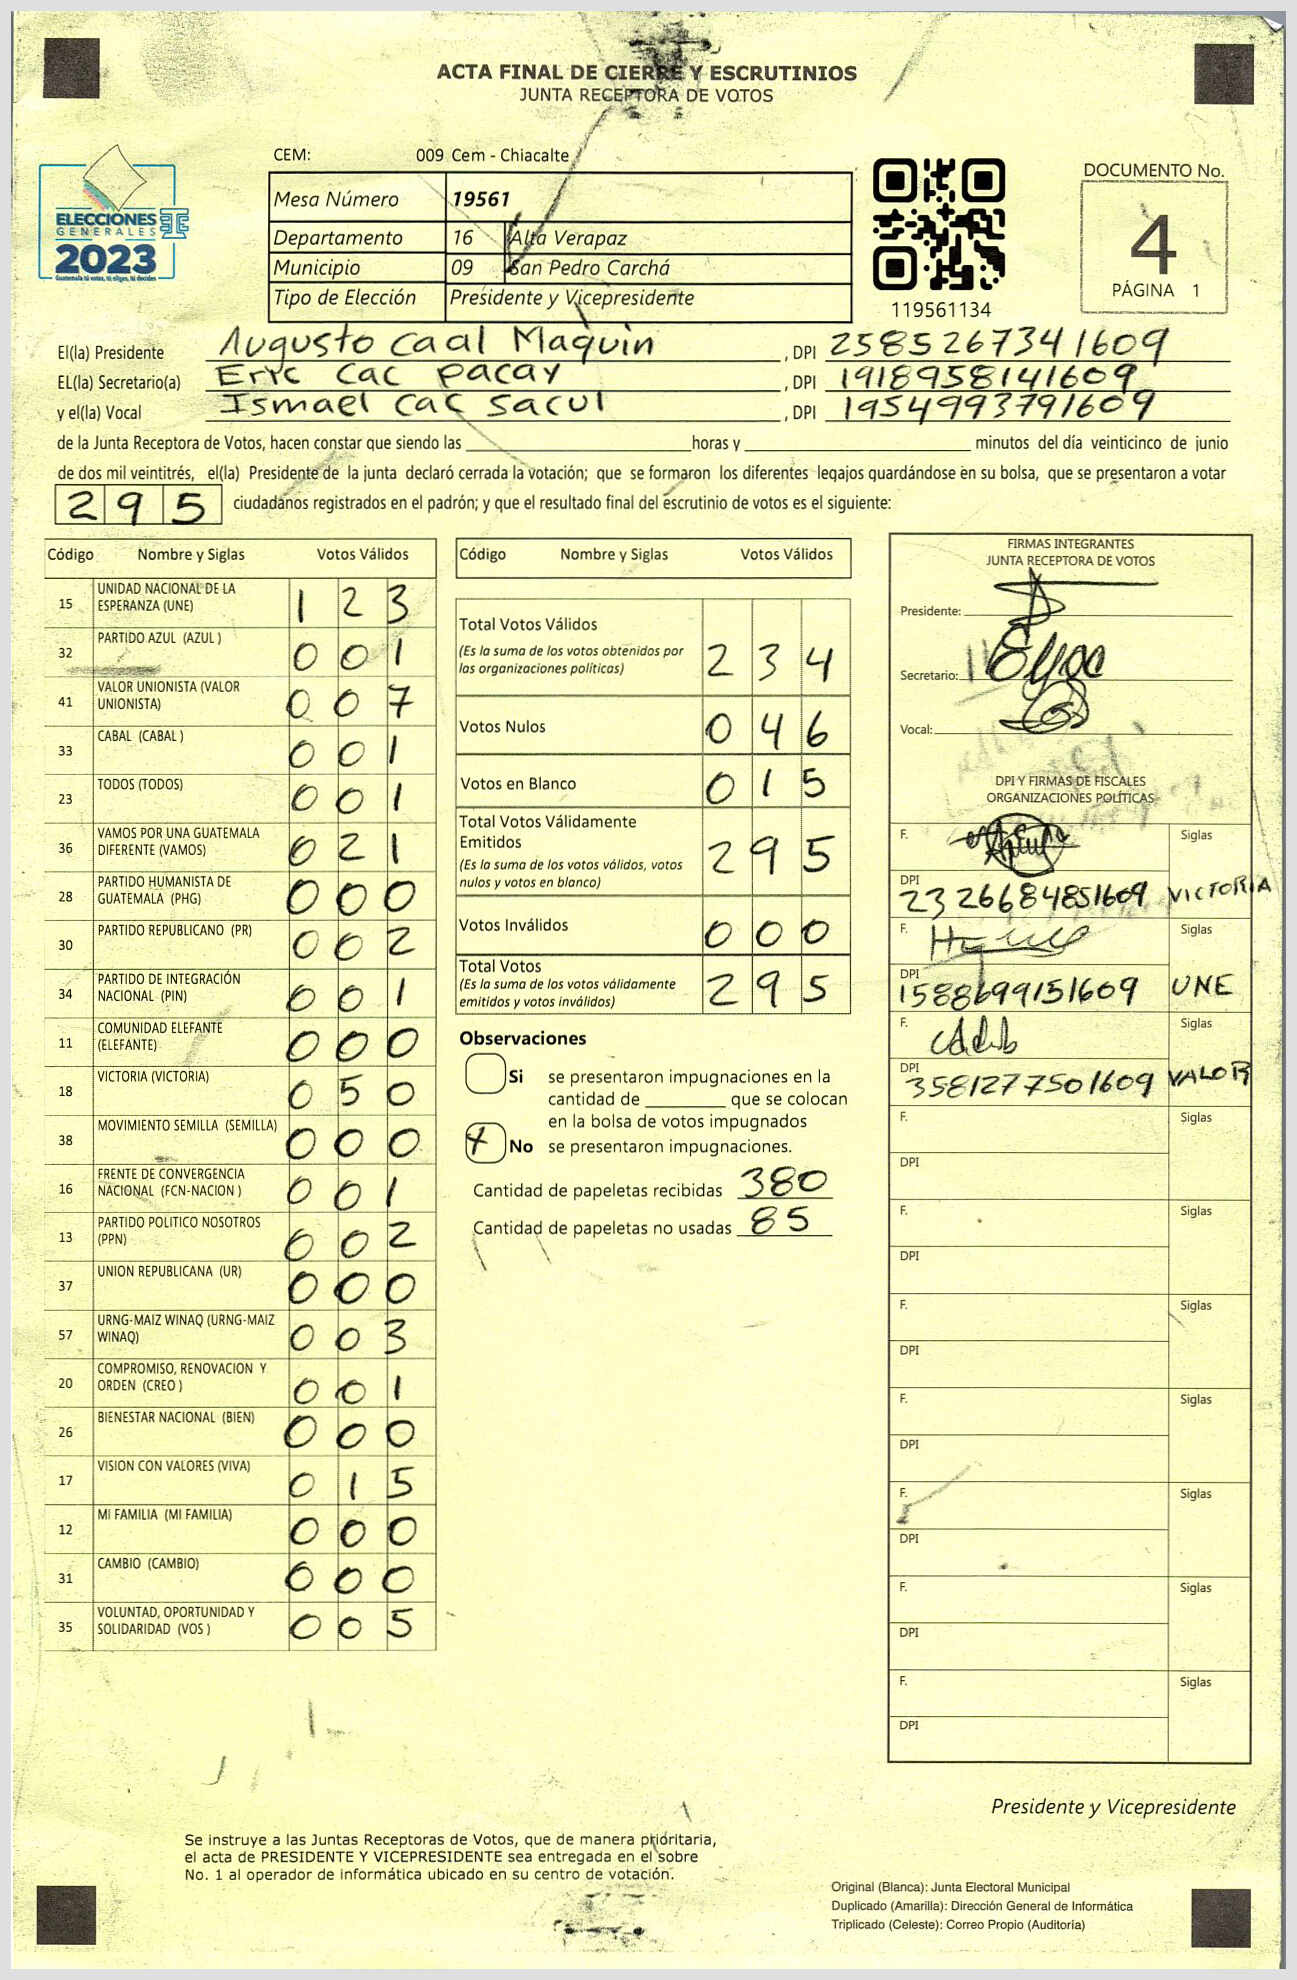 ACTA FINAL DE CIERRE Y ESCRUTINIOS
JUNTA RECEPTORA DE VOTOS
CEM: 009 Cem - Chiacalte
ELECCIONES
GENERALES
2023
Guatemala tú votas, tú eliges, tú decides
Mesa Número 19561
Departamento 16 Alta Verapaz
Municipio 09 San Pedro Carchá
Tipo de Elección Presidente y Vicepresidente
119561134
DOCUMENTO No.
4
PÁGINA 1
El(la) Presidente Augusto caal Maquin , DPI 2585267341609
EL(la) Secretario(a) Eric cac pacay , DPI 1918958141609
y el(la) Vocal Ismael cac sacul , DPI 1954993791609
de la Junta Receptora de Votos, hacen constar que siendo las horas y minutos del día veinticinco de junio
de dos mil veintitrés, el(la) Presidente de la junta declaró cerrada la votación; que se formaron los diferentes legajos guardándose en su bolsa, que se presentaron a votar
295 ciudadanos registrados en el padrón; y que el resultado final del escrutinio de votos es el siguiente:
Código Nombre y Siglas Votos Válidos
15 UNIDAD NACIONAL DE LA ESPERANZA (UNE) 123
32 PARTIDO AZUL (AZUL ) 001
41 VALOR UNIONISTA (VALOR UNIONISTA) 007
33 CABAL (CABAL ) 001
23 TODOS (TODOS) 001
36 VAMOS POR UNA GUATEMALA DIFERENTE (VAMOS) 021
28 PARTIDO HUMANISTA DE GUATEMALA (PHG) 000
30 PARTIDO REPUBLICANO (PR) 002
34 PARTIDO DE INTEGRACIÓN NACIONAL (PIN) 001
11 COMUNIDAD ELEFANTE (ELEFANTE) 000
18 VICTORIA (VICTORIA) 050
38 MOVIMIENTO SEMILLA (SEMILLA) 000
16 FRENTE DE CONVERGENCIA NACIONAL (FCN-NACION ) 001
13 PARTIDO POLITICO NOSOTROS (PPN) 002
37 UNION REPUBLICANA (UR) 000
57 URNG-MAIZ WINAQ (URNG-MAIZ WINAQ) 003
20 COMPROMISO, RENOVACION Y ORDEN (CREO ) 001
26 BIENESTAR NACIONAL (BIEN) 000
17 VISION CON VALORES (VIVA) 015
12 MI FAMILIA (MI FAMILIA) 000
31 CAMBIO (CAMBIO) 000
35 VOLUNTAD, OPORTUNIDAD Y SOLIDARIDAD (VOS ) 005
Código Nombre y Siglas Votos Válidos
Total Votos Válidos 234
(Es la suma de los votos obtenidos por
las organizaciones políticas)
Votos Nulos 046
Votos en Blanco 015
Total Votos Válidamente
Emitidos 295
(Es la suma de los votos válidos, votos
nulos y votos en blanco)
Votos Inválidos 000
Total Votos 295
(Es la suma de los votos válidamente
emitidos y votos inválidos)
Observaciones
Si se presentaron impugnaciones en la
cantidad de que se colocan
en la bolsa de votos impugnados
No se presentaron impugnaciones.
Cantidad de papeletas recibidas 380
Cantidad de papeletas no usadas 85
FIRMAS INTEGRANTES
JUNTA RECEPTORA DE VOTOS
Presidente:
Secretario:
Vocal:
DPI Y FIRMAS DE FISCALES
ORGANIZACIONES POLÍTICAS
F. Siglas
DPI 2326684851609 VICTORIA
F. Siglas
DPI 1588699151609 UNE
F. Siglas
DPI 3581277501609 VALOR
F. Siglas
DPI
F. Siglas
DPI
F. Siglas
DPI
F. Siglas
DPI
F. Siglas
DPI
F. Siglas
DPI
F. Siglas
DPI
Presidente y Vicepresidente
Se instruye a las Juntas Receptoras de Votos, que de manera prioritaria,
el acta de PRESIDENTE Y VICEPRESIDENTE sea entregada en el sobre
No. 1 al operador de informática ubicado en su centro de votación.
Original (Blanca): Junta Electoral Municipal
Duplicado (Amarilla): Dirección General de Informática
Triplicado (Celeste): Correo Propio (Auditoría)